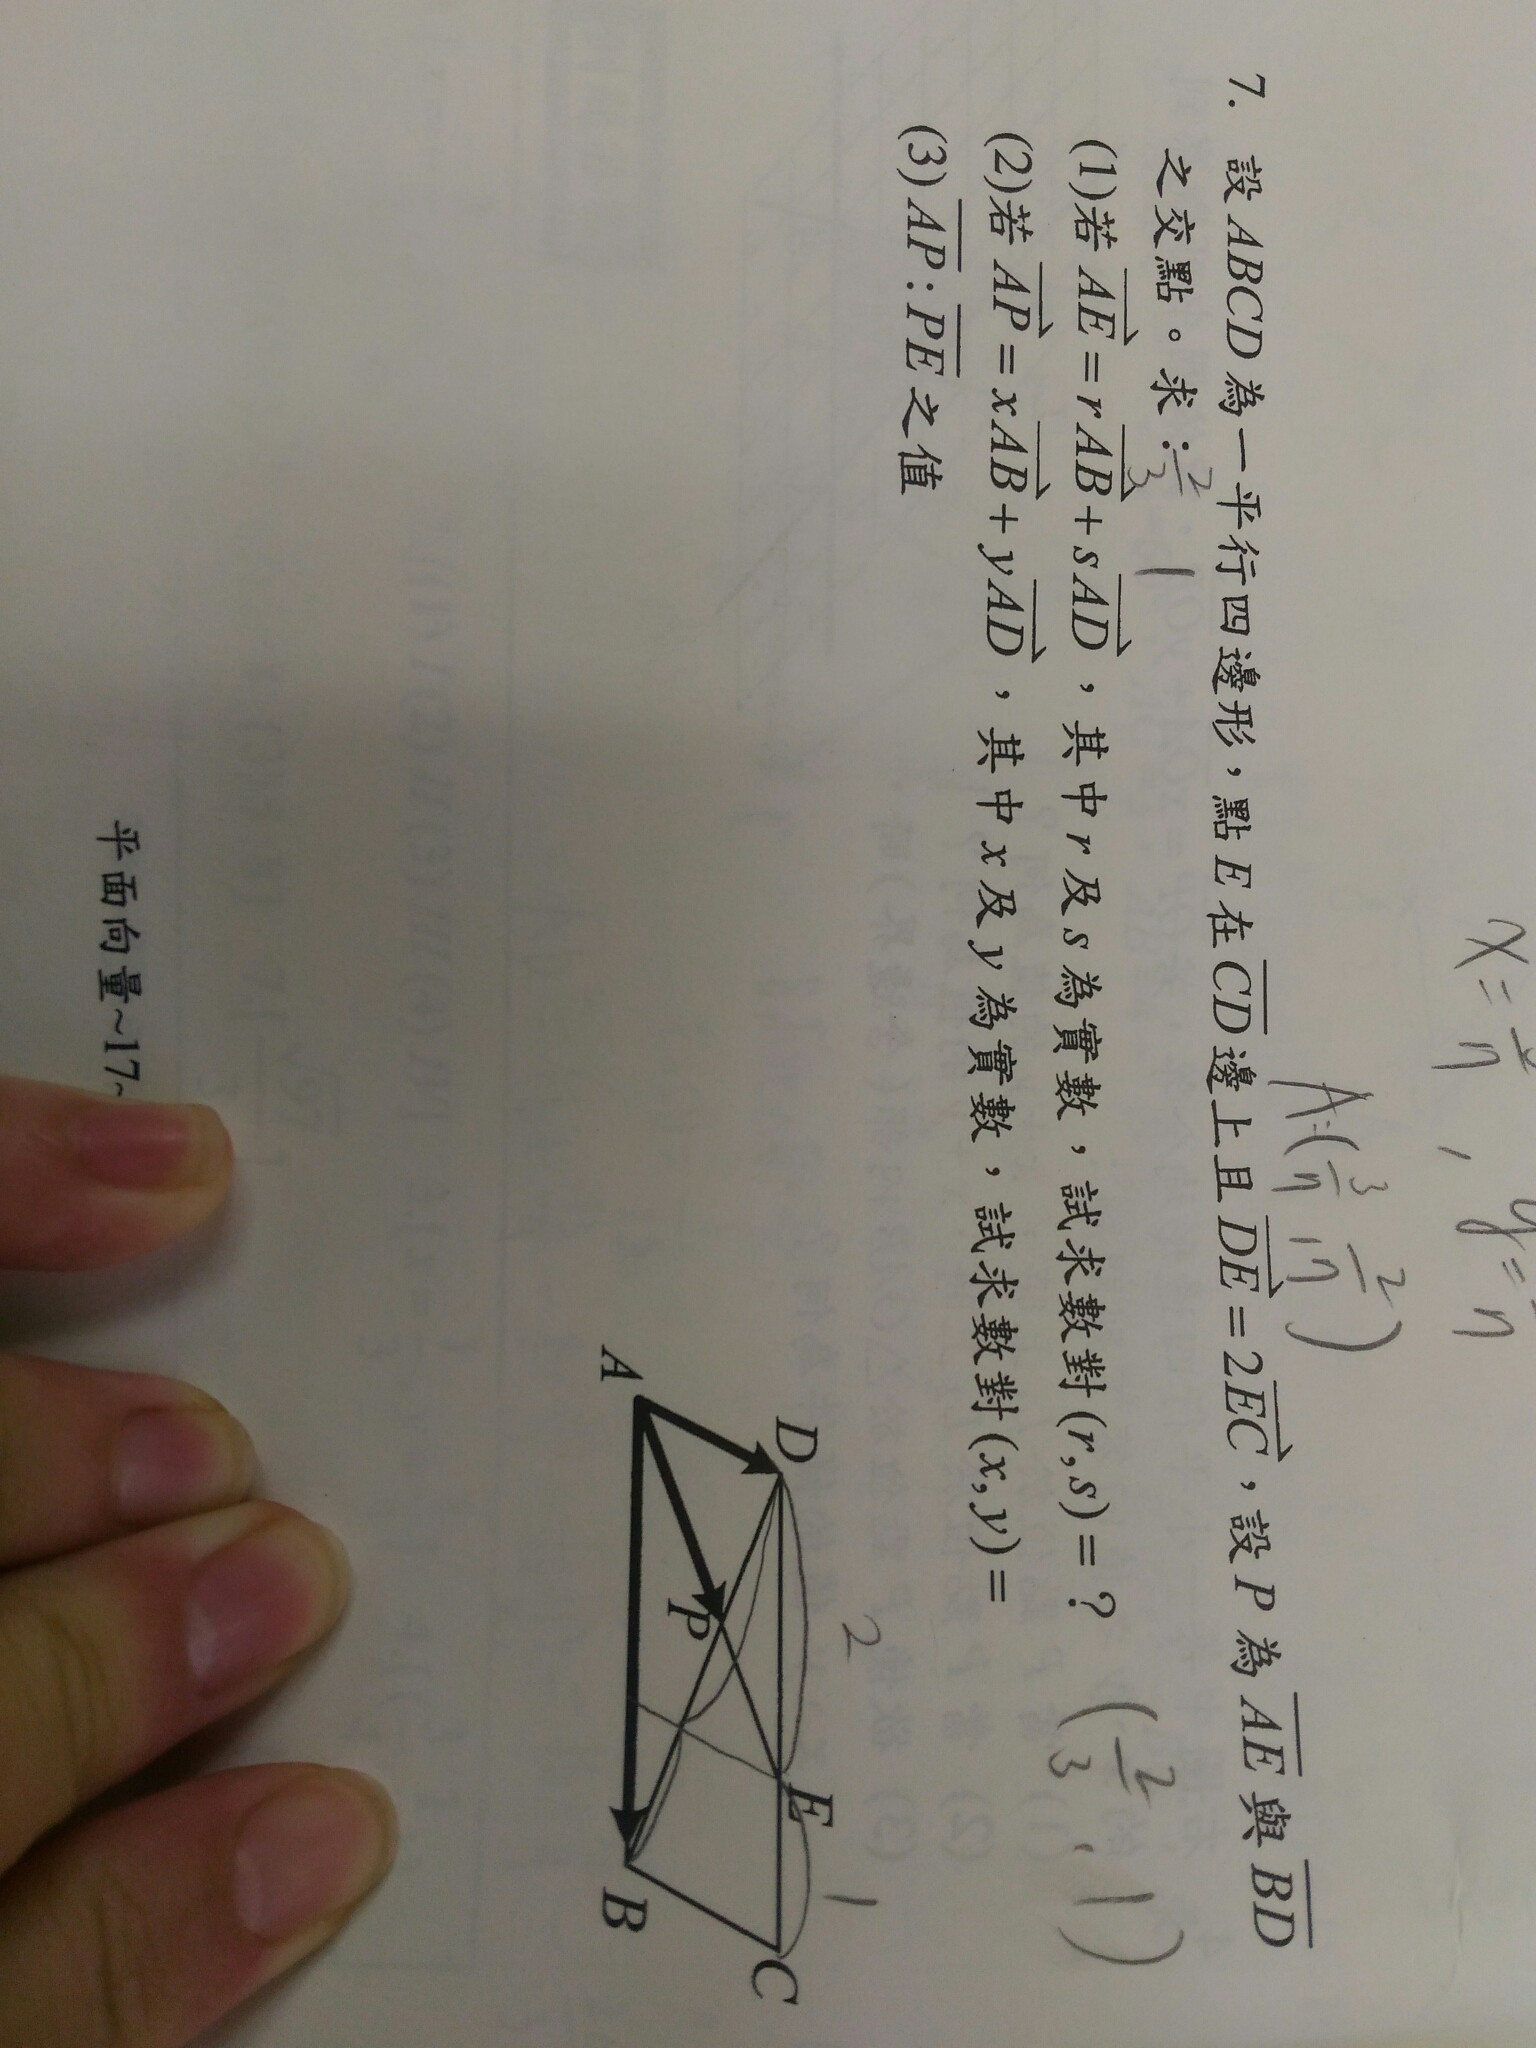 7. 設ABCD為一平行四邊形，點E在CD邊上且DE=2EC，設P為AE與BD
之交點。求：
2/3 1
(1)若AE=rAB+sAD，其中r及s為實數，試求數對(r,s)=？ (2/3, 1)
(2)若AP=xAB+yAD，其中x及y為實數，試求數對(x,y)=
(3)AP:PE之值
A:(3/n, 2/n)
D
2
E
1
C
A
P
B
平面向量~17~